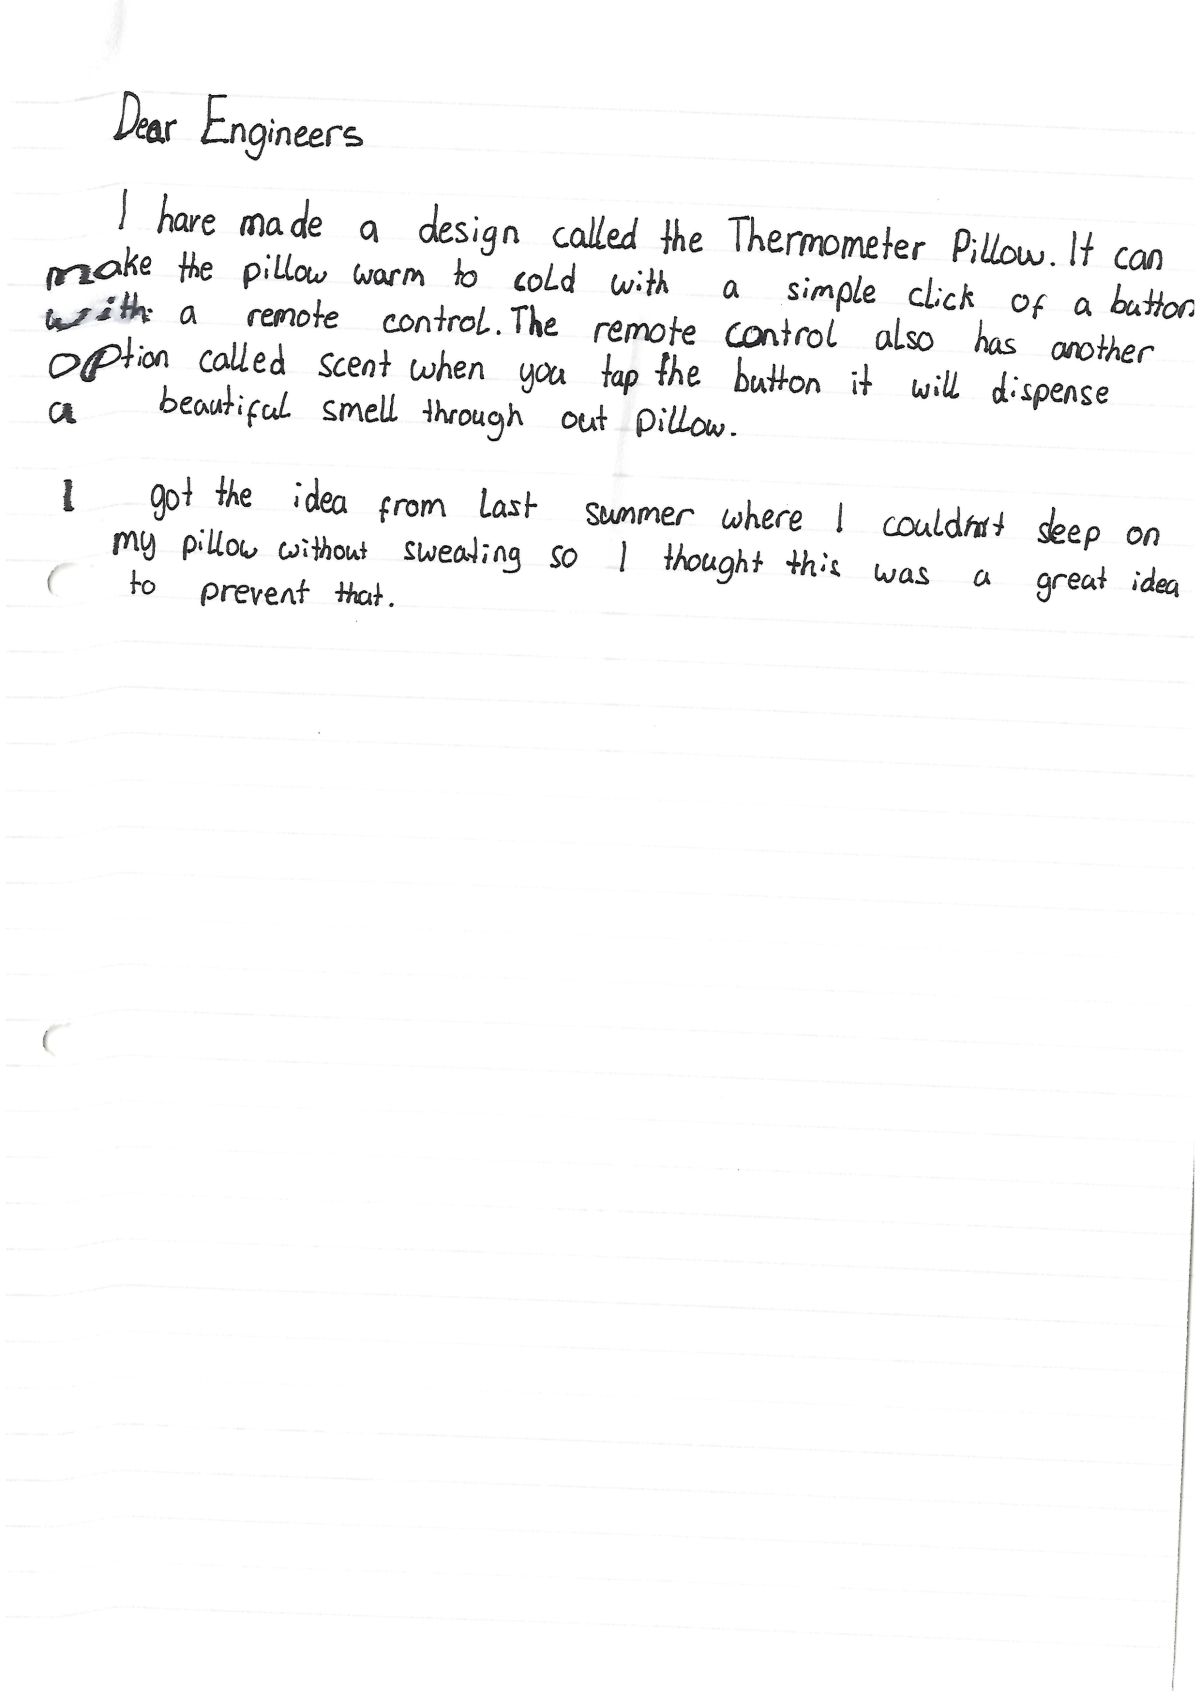 Dear Engineers
I have made a design called the Thermometer Pillow. It can
make the pillow warm to cold with a simple click of a button
with a remote control. The remote control also has another
option called scent when you tap the button it will dispense
a beautiful smell through out pillow.
I got the idea from last summer where I couldn't sleep on
my pillow without sweating so I thought this was a great idea
to prevent that.